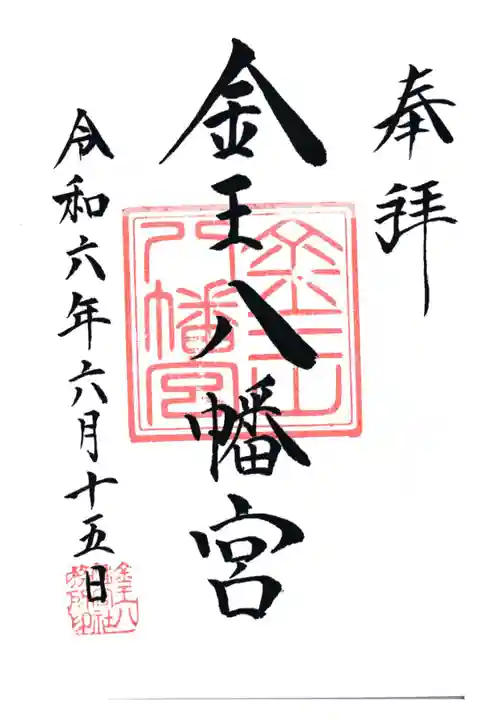 奉拝
金王八幡宮
金王八幡宮
令和六年六月十五日
金王八幡宮社務所印